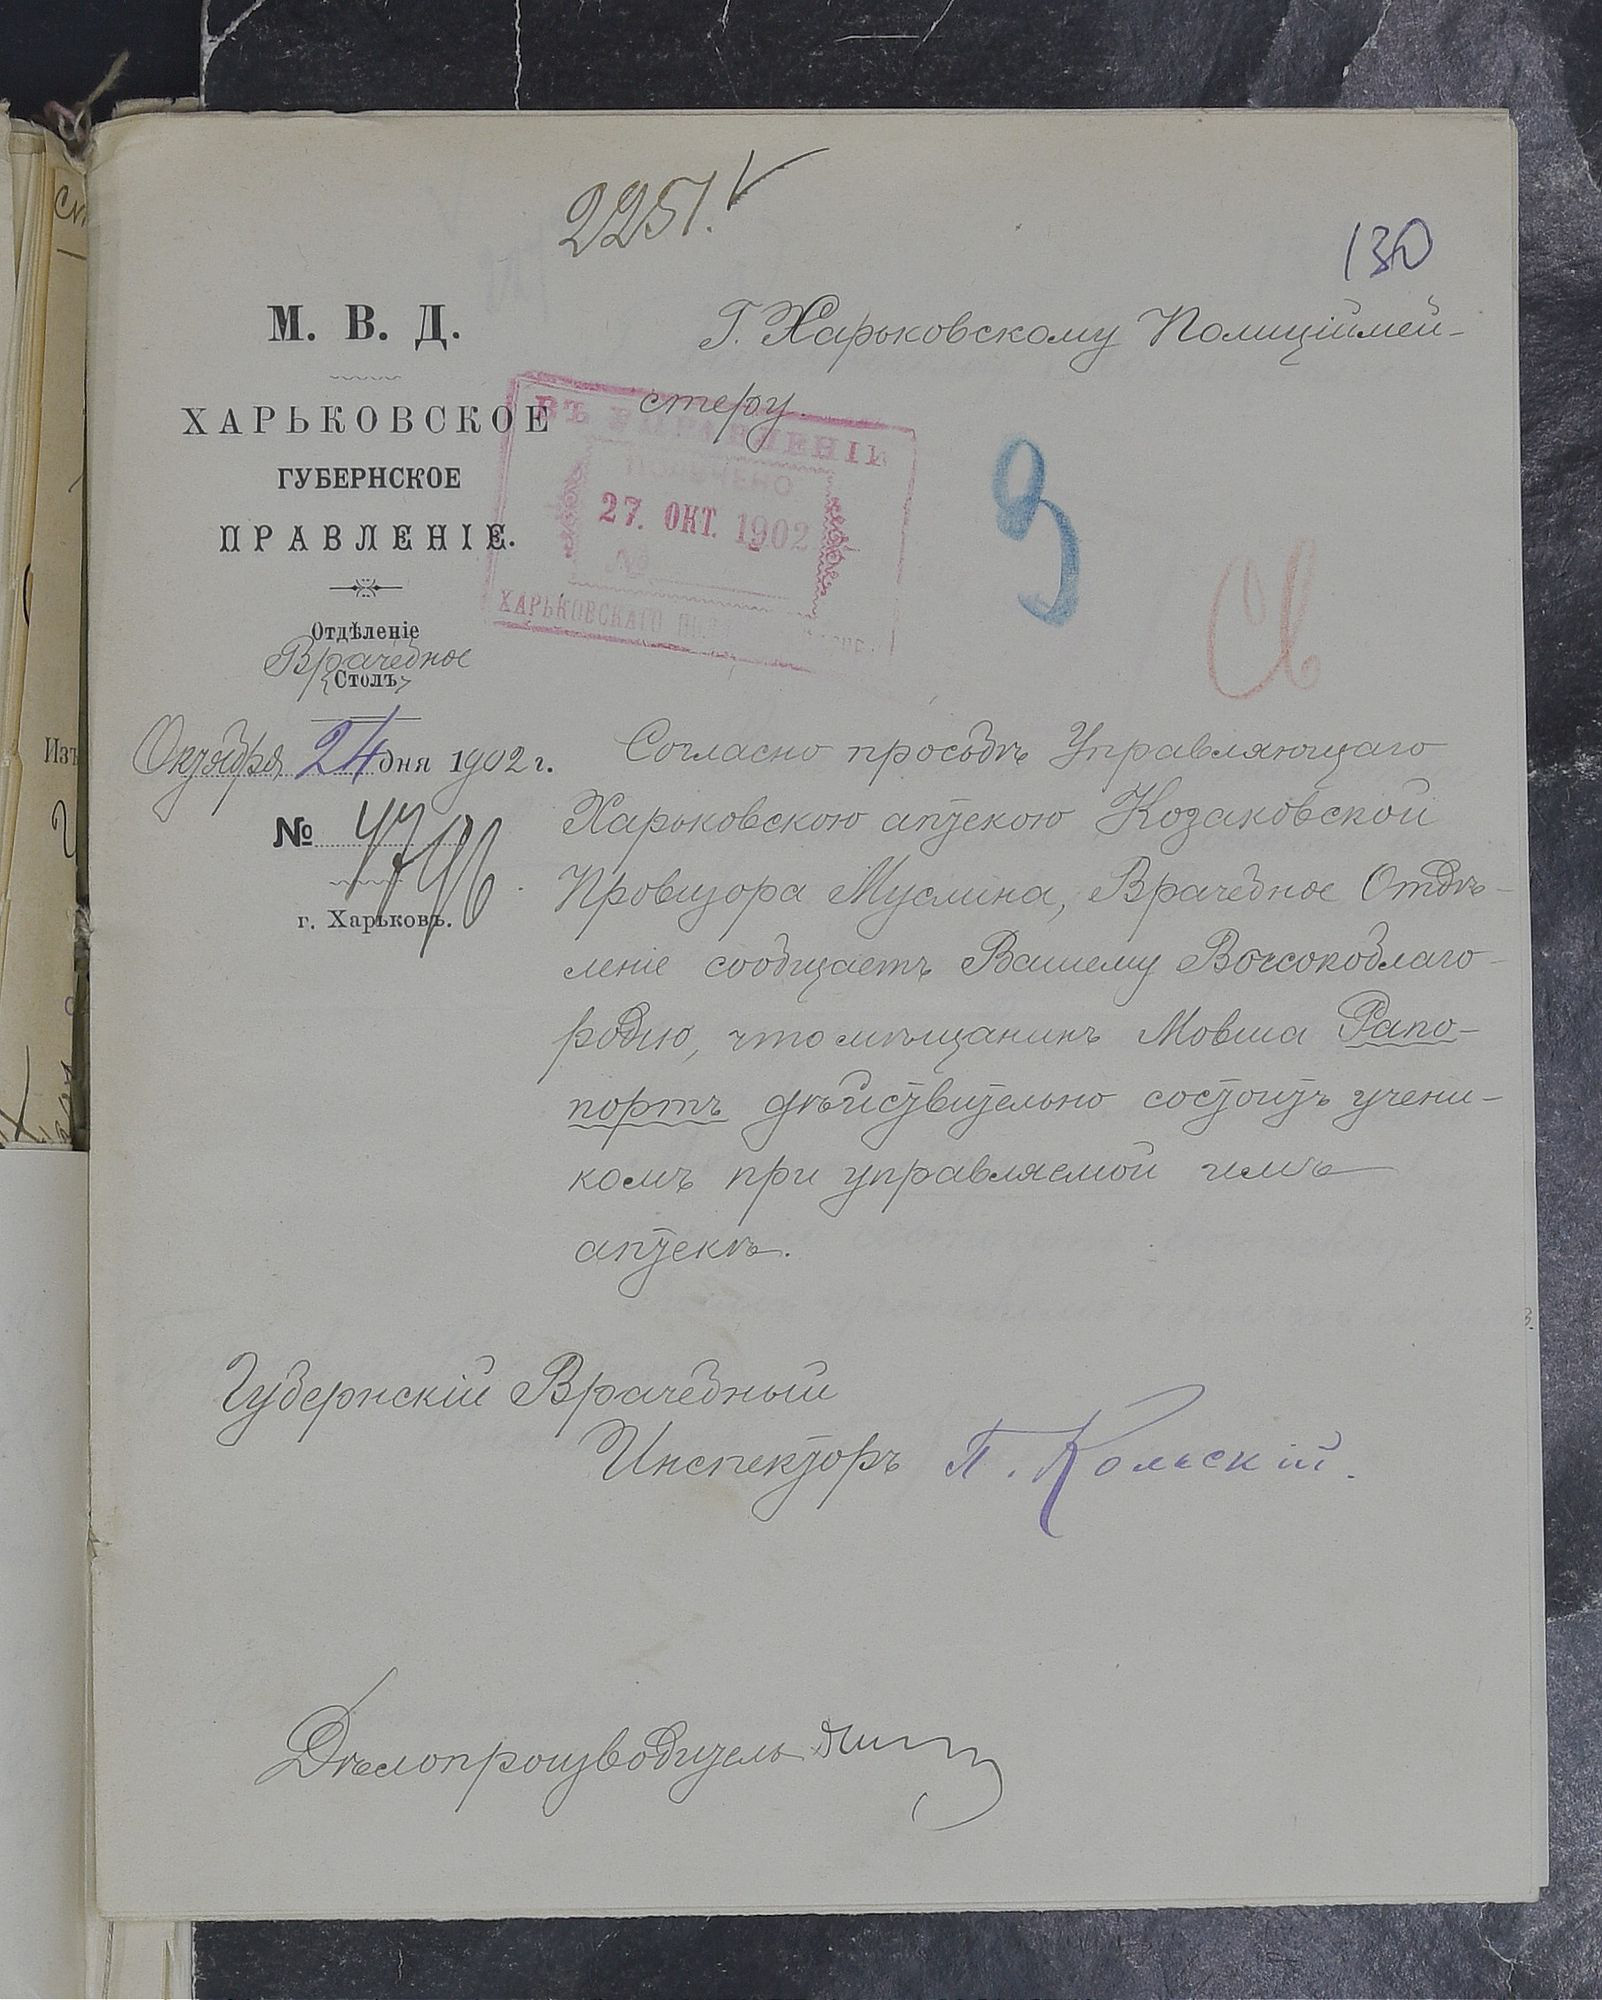 2251.
130
М. В. Д.
ХАРЬКОВСКОЕ
ГУБЕРНСКОЕ
ПРАВЛЕНІЕ.
Отдѣленіе
Врачебное
Столъ
Октября 24 дня 1902 г.
№
г. Харьковъ.
Г. Харьковскому Полиціймей-
стеру.
ВЪ УПРАВЛЕНІИ
ПОЛУЧЕНО
27. ОКТ. 1902
№
ХАРЬКОВСКАГО
Согласно просьбѣ Управляющаго
Харьковскою аптекою Козаковской
Провизора Муслина, Врачебное Отдѣ-
леніе сообщаетъ Вашему Высокоблаго-
родію, что мѣщанинъ Мовша Рапо-
портъ дѣйствительно состоитъ учени-
комъ при управляемой имъ
аптекѣ.
Губернскій Врачебный
Инспекторъ П. Кольскій.
Дѣлопроизводитель
Изъ